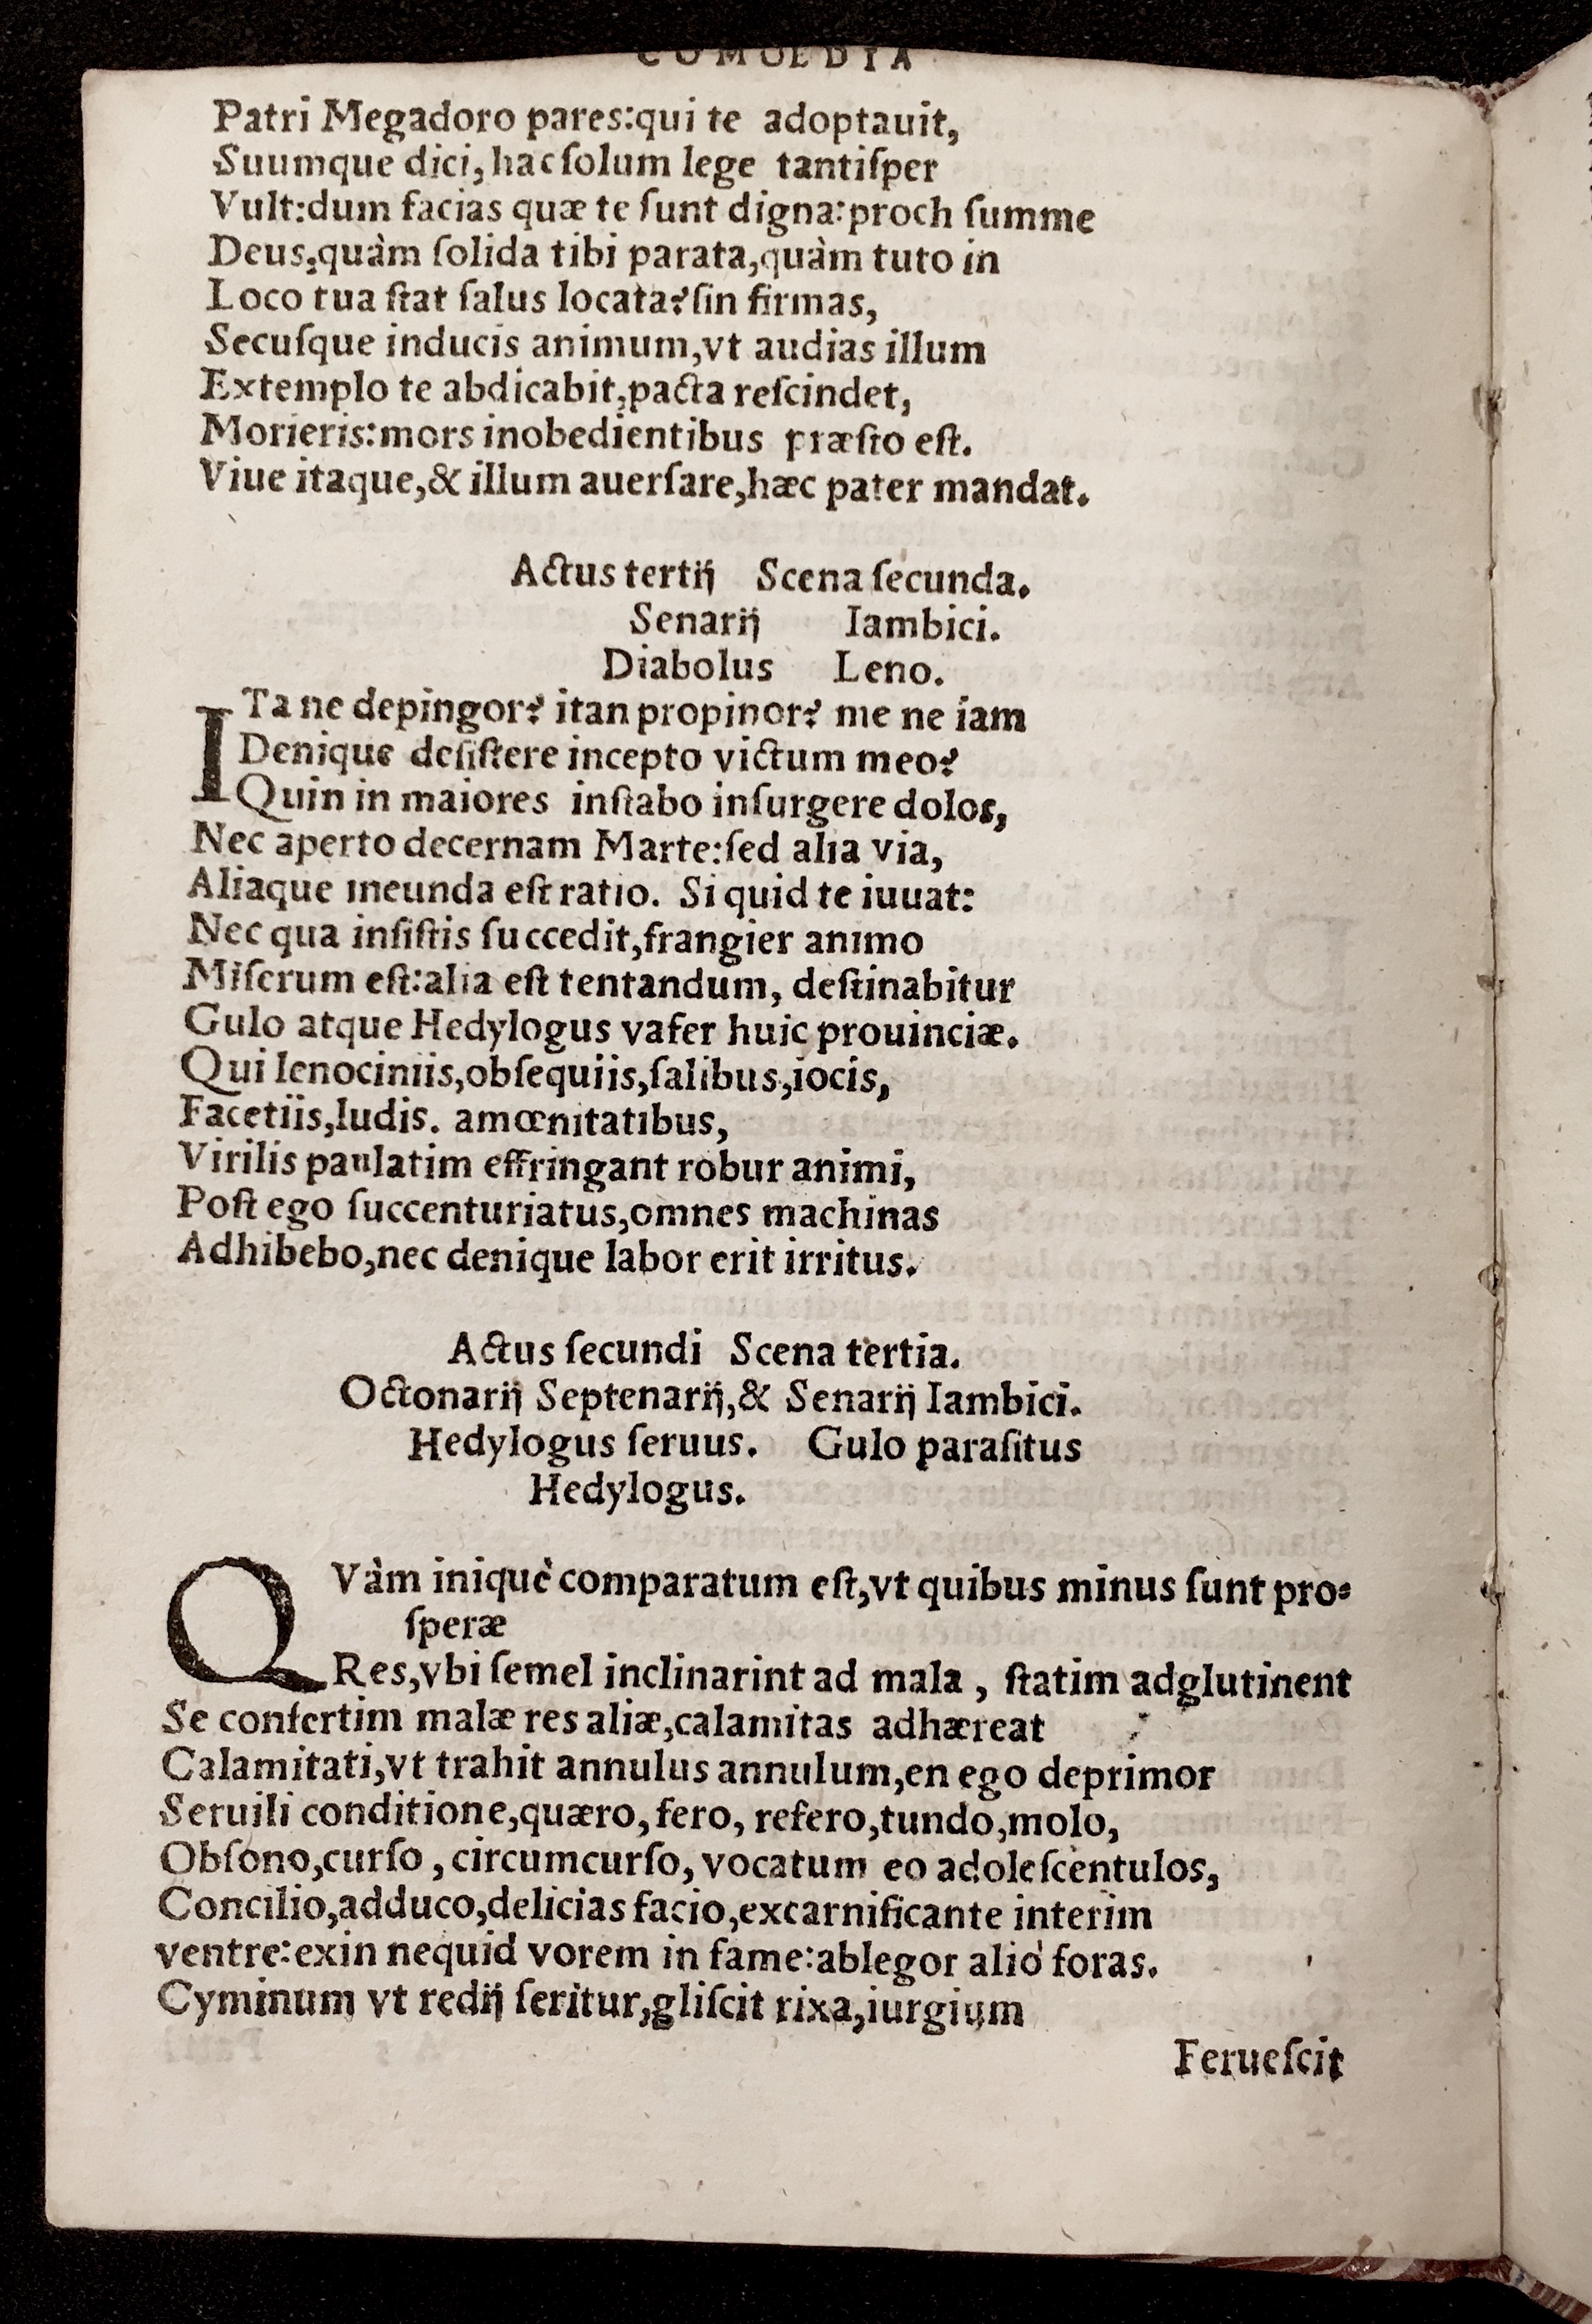 COMOEDIA
Patri Megadoro pares:qui te adoptauit,
Suumque dici, hac ſolum lege tantiſper
Vult:dum facias quæ te ſunt digna:proch ſumme
Deus,quàm ſolida tibi parata,quàm tuto in
Loco tua ſtat ſalus locata? ſin firmas,
Secuſque inducis animum,vt audias illum
Extemplo te abdicabit,pacta reſcindet,
Morieris:mors inobedientibus præſto eſt.
Viue itaque,& illum auerſare,hæc pater mandat.
Actus tertij Scena ſecunda.
Senarij Iambici.
Diabolus Leno.
ITa ne depingor? itan propinor? me ne iam
Denique deſiſtere incepto victum meo?
Quin in maiores inſtabo inſurgere dolos,
Nec aperto decernam Marte:ſed alia via,
Aliaque ineunda eſt ratio. Si quid te iuuat:
Nec qua inſiſtis ſuccedit,frangier animo
Miſerum eſt:alia eſt tentandum, deſtinabitur
Gulo atque Hedylogus vafer huic prouinciæ.
Qui lenociniis,obſequiis,ſalibus,iocis,
Facetiis,ludis. amœnitatibus,
Virilis paulatim effringant robur animi,
Poſt ego ſuccenturiatus,omnes machinas
Adhibebo,nec denique labor erit irritus.
Actus ſecundi Scena tertia.
Octonarij Septenarij,& Senarij Iambici.
Hedylogus ſeruus. Gulo paraſitus
Hedylogus.
QVàm iniquè comparatum eſt,vt quibus minus ſunt pro-
ſperæ
Res,vbi ſemel inclinarint ad mala , ſtatim adglutinent
Se confertim malæ res aliæ,calamitas adhæreat
Calamitati,vt trahit annulus annulum,en ego deprimor
Seruili conditione,quæro, fero, refero,tundo,molo,
Obſono,curſo , circumcurſo, vocatum eo adoleſcentulos,
Concilio,adduco,delicias facio,excarnificante interim
ventre:exin nequid vorem in fame:ablegor aliò foras.
Cyminum vt redij ſeritur,gliſcit rixa,iurgium
Ferueſcit